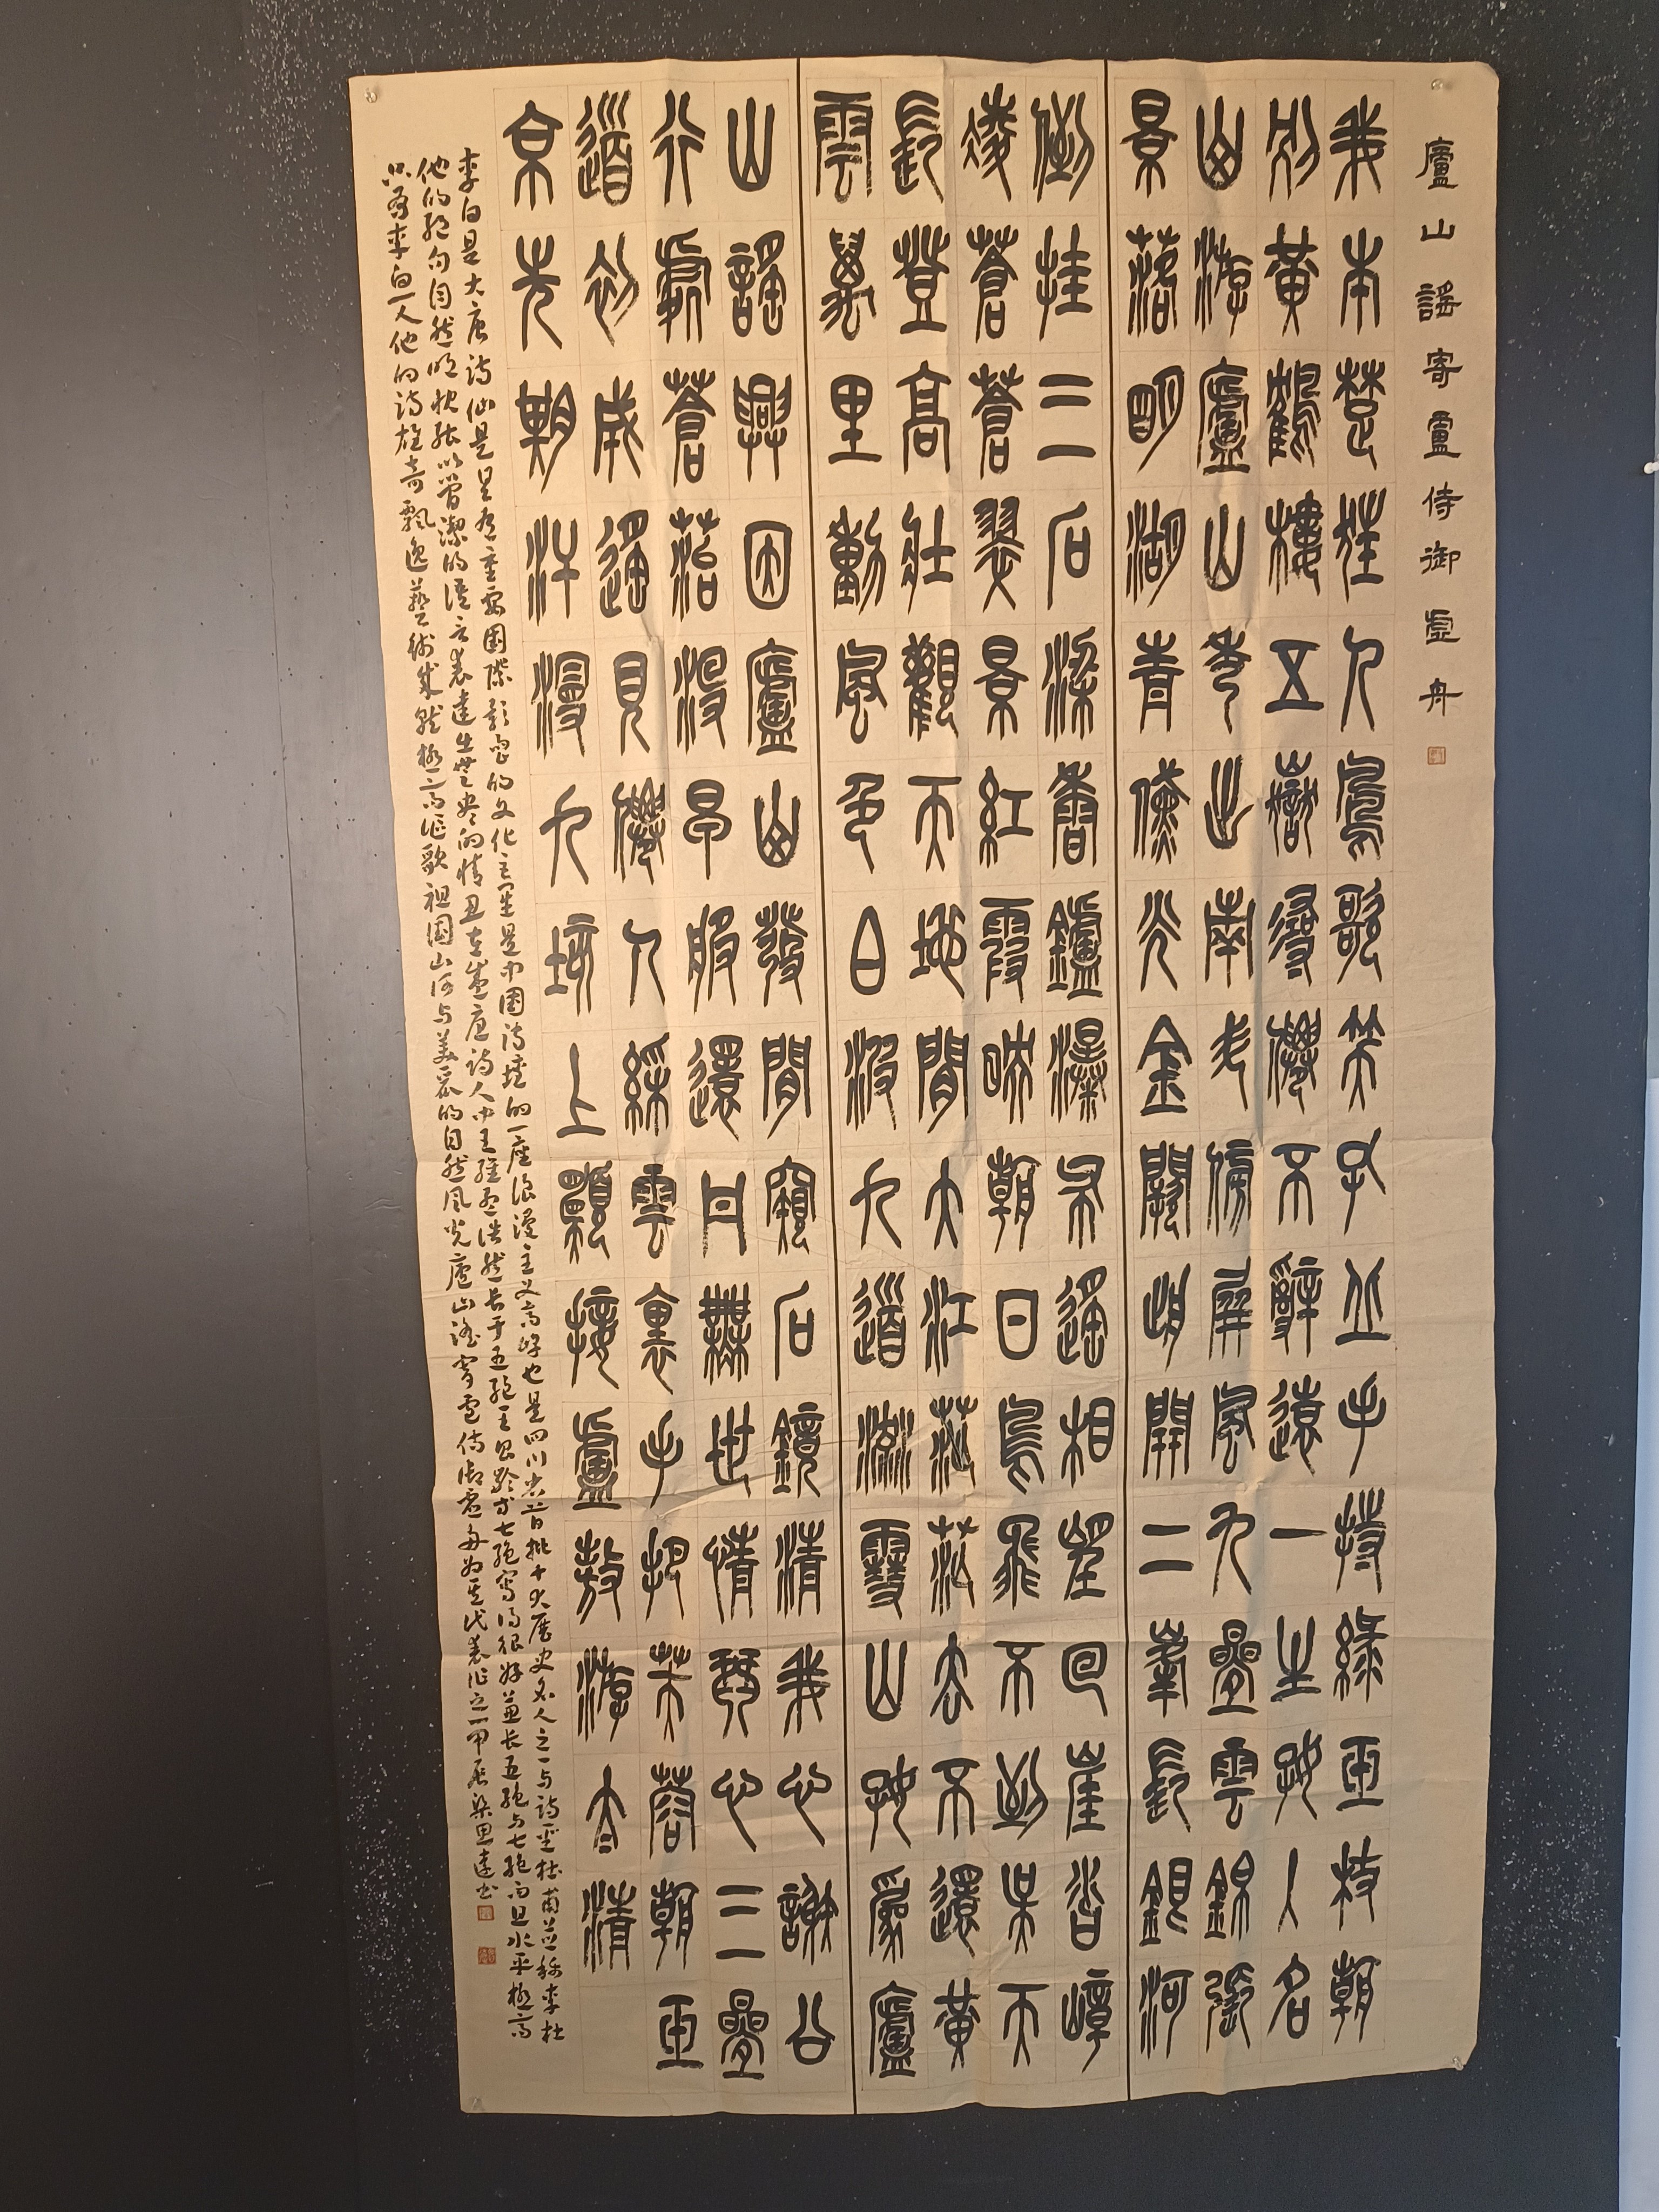 廬山謠寄盧侍御虛舟
我本楚狂人鳳歌笑孔丘手持綠玉枝朝
別黃鶴樓五嶽尋僊不辭遠一生好入名
山游廬山秀出南斗傍屏風九疊雲錦張
景落明湖青黛光金闕前開二峯長銀河
倒挂三石梁香鑪瀑布遙相望回崖沓嶂
凌蒼蒼翠景紅霞映朝日鳥飛不到吳天
長登高壯觀天地間大江茫茫去不還黃
雲萬里動風色白波九道流雪山好爲廬
山謠興因廬山發閒窺石鏡清我心謝公
行處蒼苔沒早服還丹無世情琴心三疊
道初成遙見僊人綵雲裏手把芙蓉朝玉
京先期汗漫九垓上願接盧敖游太清
李白是大唐诗仙是具有重要国际影响的文化之星是中国诗坛的一座浪漫主义高峰也是四川省首批十大历史名人之一与诗圣杜甫並称李杜
他的绝句自然明快能以简洁的语言表达出无尽的情思在盛唐诗人中王维孟浩然长于五绝王昌龄等七绝写得很好兼长五绝与七绝而且水平极高
只有李白一人他的诗雄奇飘逸藝術成就极高讴歌祖国山河与美丽的自然风光廬山谣寄盧侍御虚舟为其代表作之一甲辰梁思達书